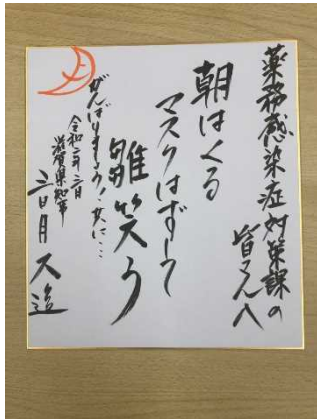 薬務感染症対策課の
皆さんへ
朝はくる
マスクはずして
雛笑う
がんばりましょう！共に…
令和二年三月
滋賀県知事
三日月大造